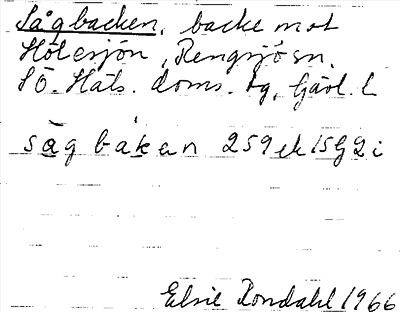 Sågbacken, backe mot
Hölesjön, Rengsjösn,
SÖ. Häls. doms. tg, Gävl. l
såg bakan 259 ek 15G 2 i
Elsie Rondahl 1966